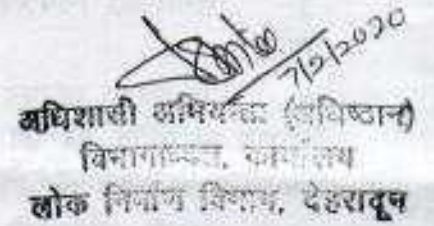 7/2/2020
अधिशासी अभियन्ता (अधिष्ठान)
विभागाध्यक्ष, कार्यालय
लोक निर्माण विभाग, देहरादून